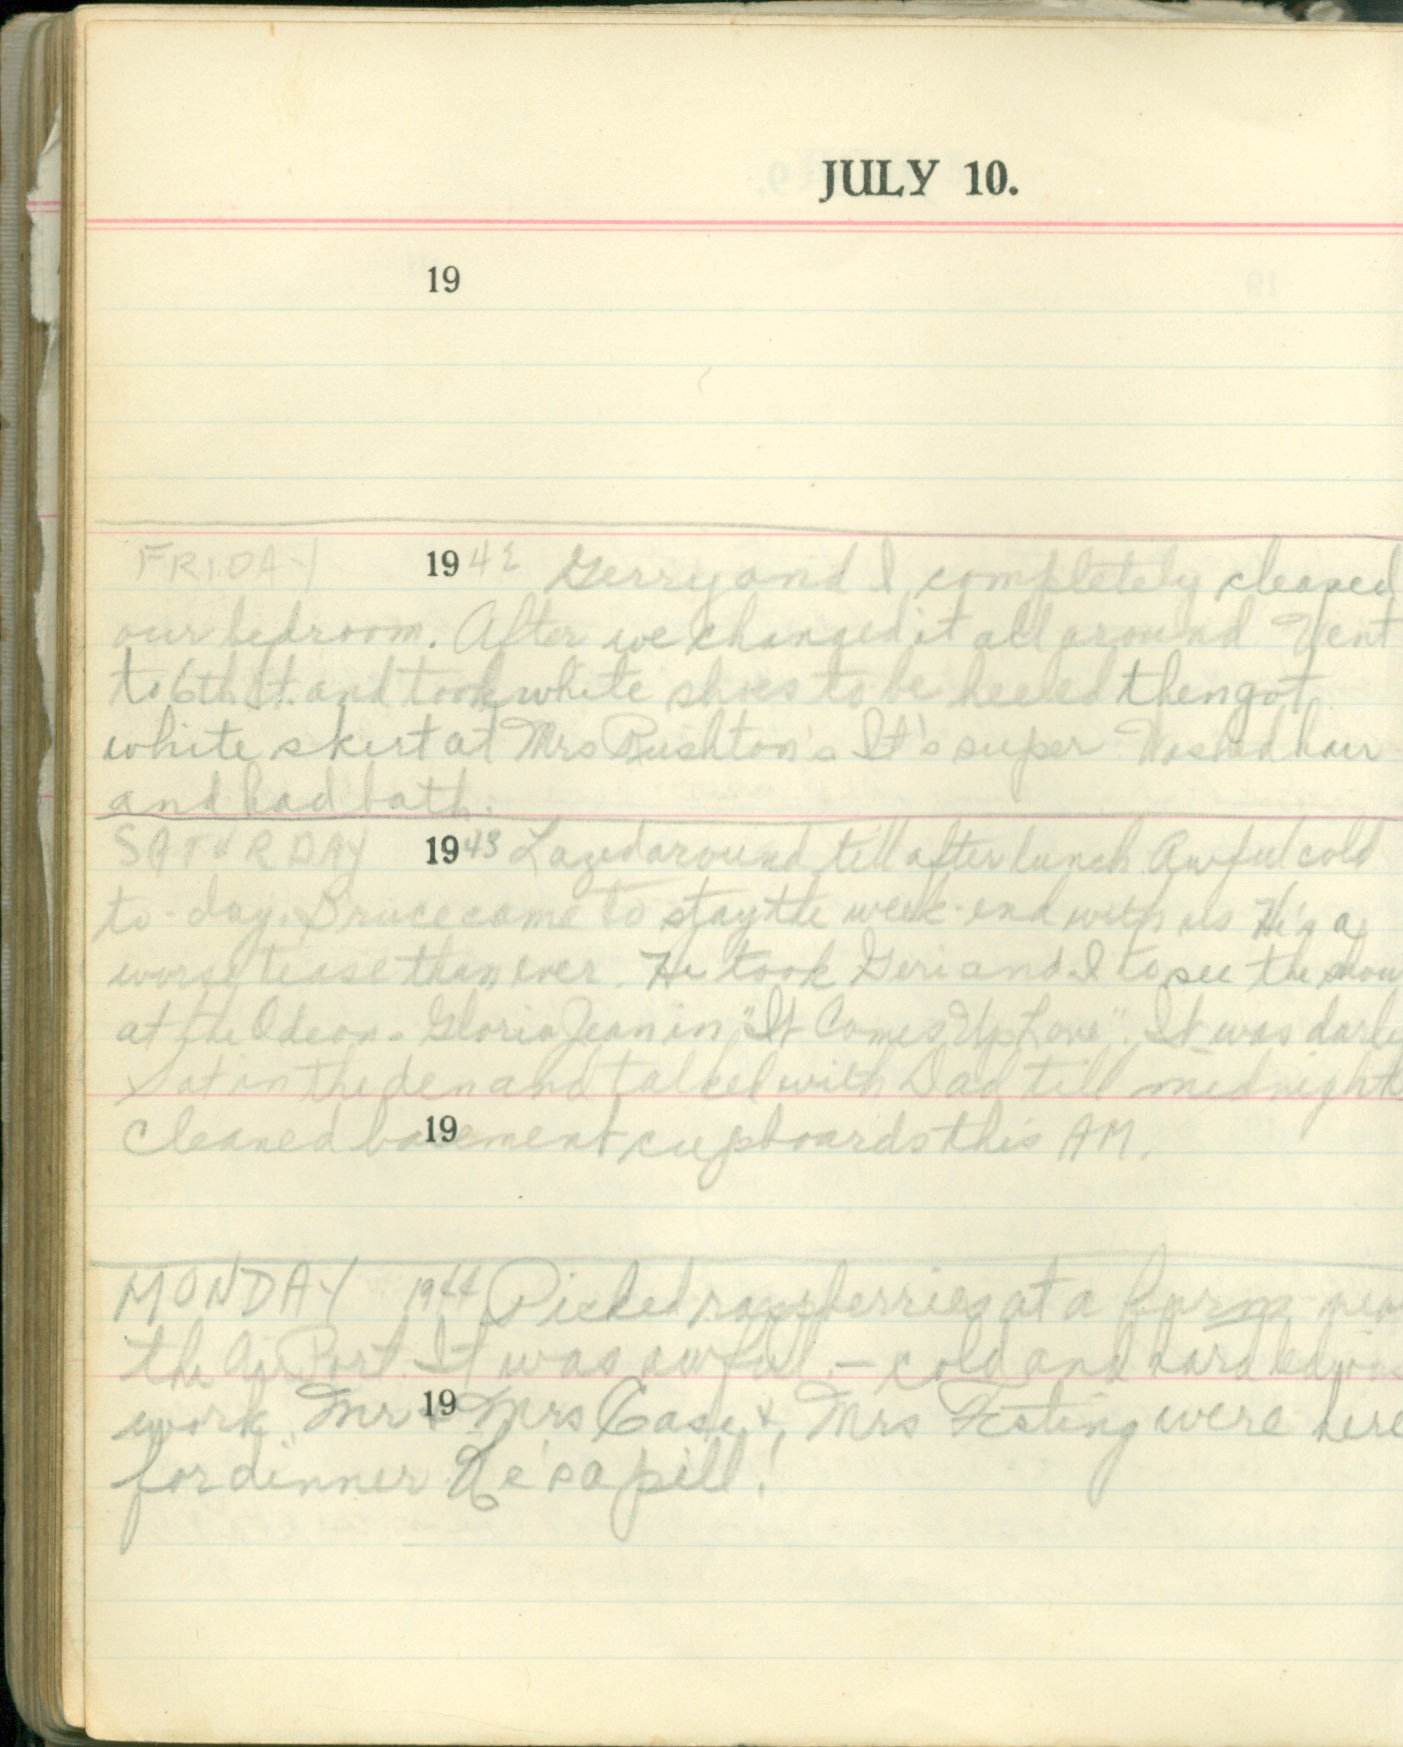 JULY 10.
19
FRIDAY 1942 Gerry and I completely cleaned
our bedroom. After we changed it all around Went
to 6th St. and took white shoes to be heeled then got
white skirt at Mrs Rushton's It's super Washed hair
and had bath.
SATURDAY 1943 Lazed around till after lunch. Awful cold
to-day. Bruce came to stay the week-end with us He's a
worse tease than ever. He took Geri and I to see the show
at the Odeon - Gloria Jean in "It Comes Up Love". It was darling
Sat in the den and talked with Dad till midnight
19
Cleaned basement cupboards this AM.
MONDAY 1944 Picked raspberries at a farm near
the Air Port. It was awful - cold and hard
19
work. Mr & Mrs Case & Mrs Festing were here
for dinner He's a pill!